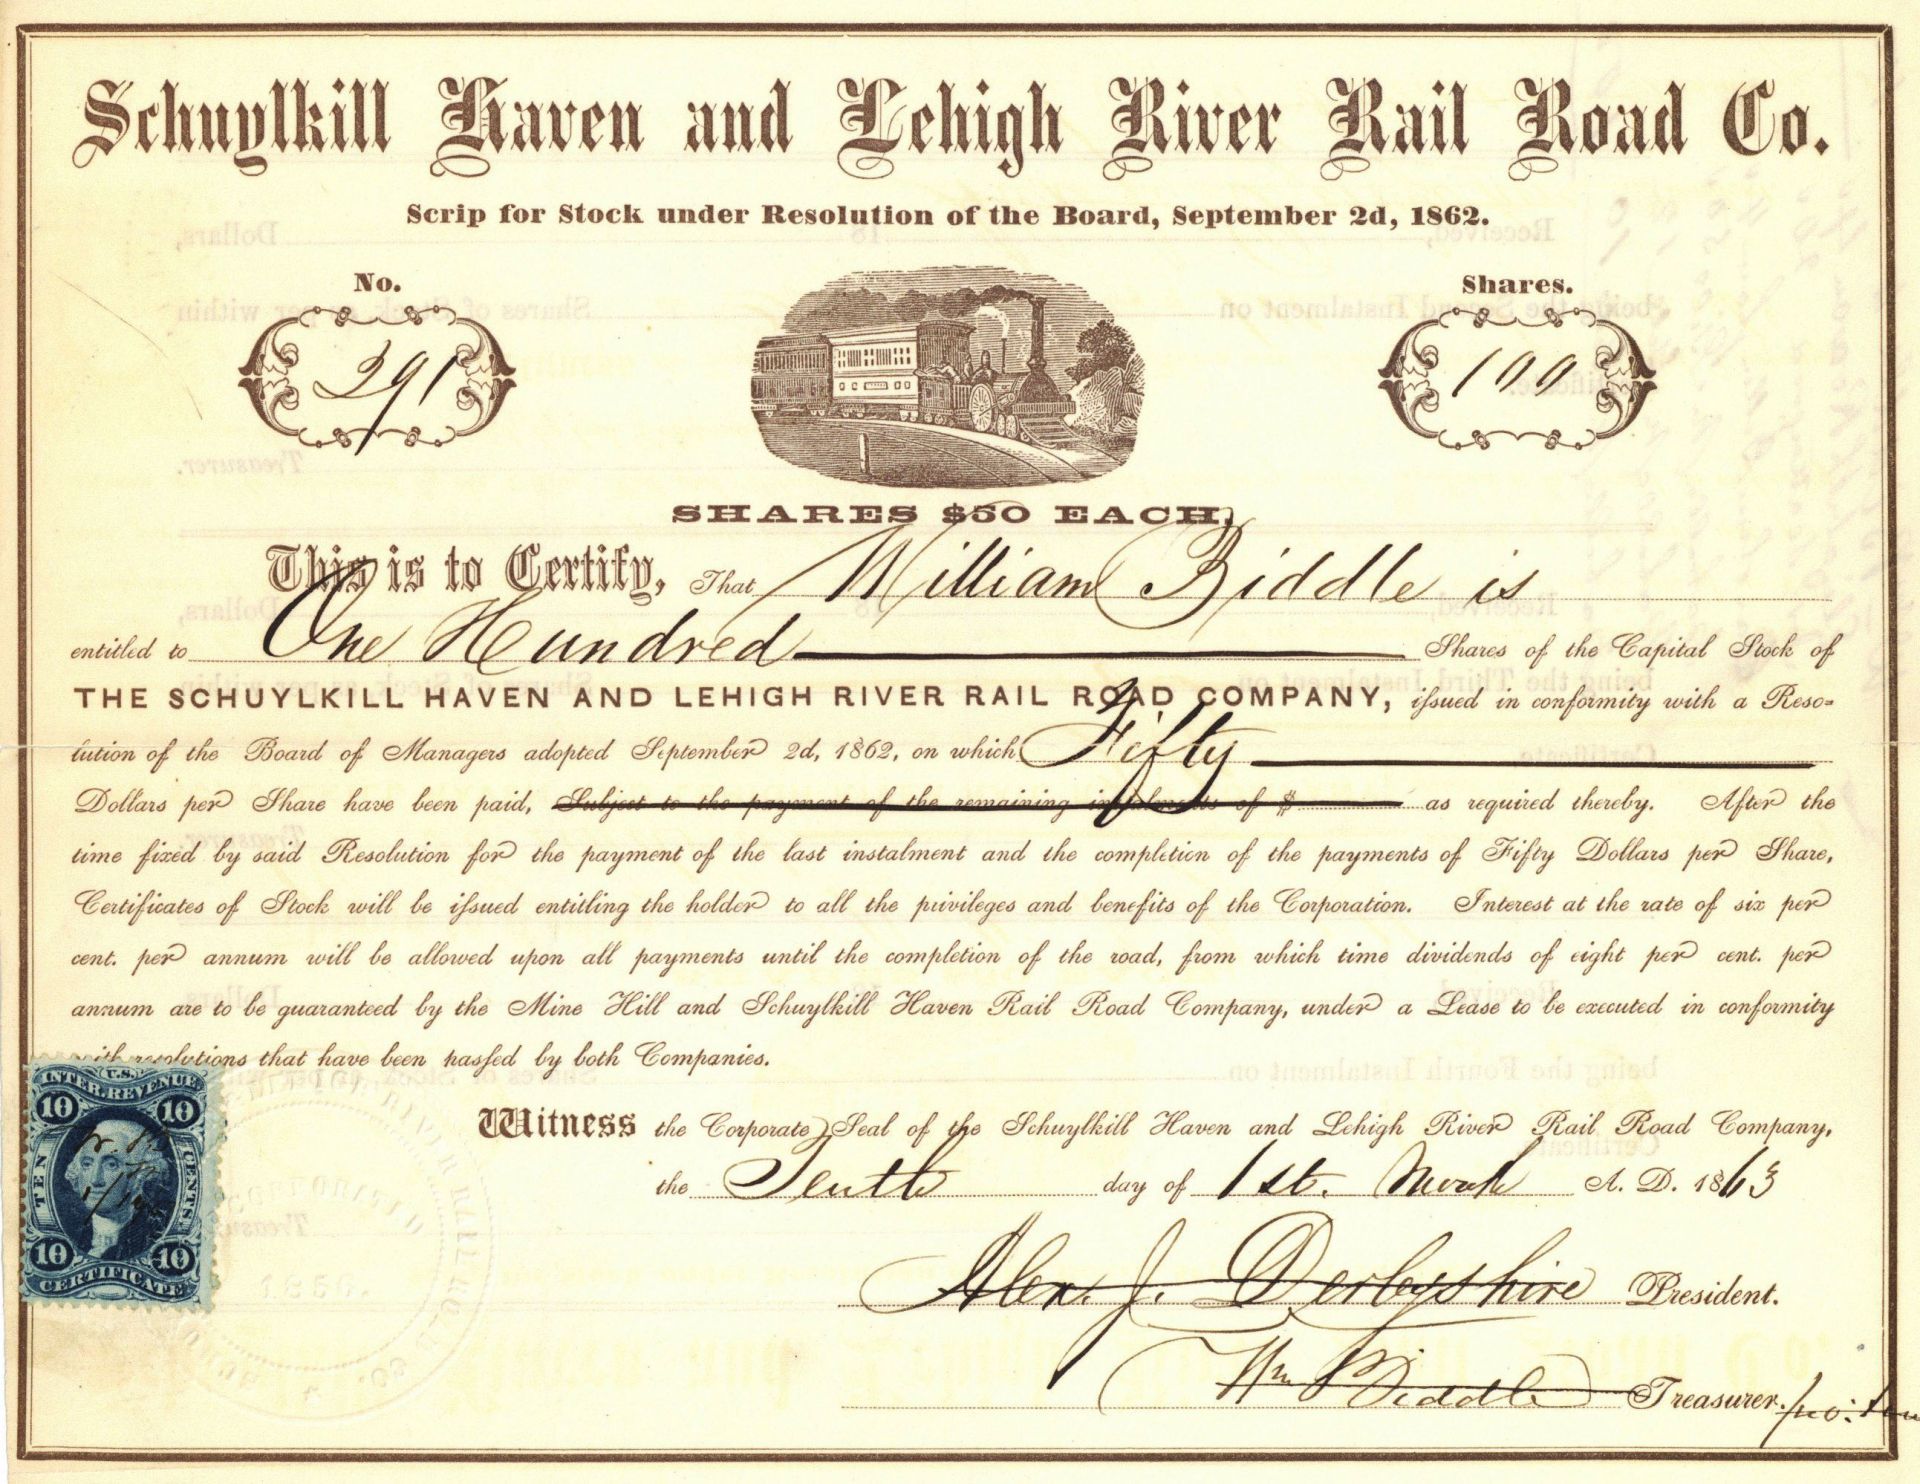 Schuylkill Haven and Lehigh River Rail Road Co.
Scrip for Stock under Resolution of the Board, September 2d, 1862.
No.
Shares.
391
100
SHARES $50 EACH.
This is to Certify, That William Biddle is
entitled to One Hundred Shares of the Capital Stock of
THE SCHUYLKILL HAVEN AND LEHIGH RIVER RAIL ROAD COMPANY, issued in conformity with a Reso-
lution of the Board of Managers adopted September 2d, 1862, on which Fifty
Dollars per Share have been paid, Subject to the payment of the remaining instalments of $ as required thereby. After the
time fixed by said Resolution for the payment of the last instalment and the completion of the payments of Fifty Dollars per Share,
Certificates of Stock will be issued entitling the holder to all the privileges and benefits of the Corporation. Interest at the rate of six per
cent. per annum will be allowed upon all payments until the completion of the road, from which time dividends of eight per cent. per
annum are to be guaranteed by the Mine Hill and Schuylkill Haven Rail Road Company, under a Lease to be executed in conformity
with resolutions that have been passed by both Companies.
Witness the Corporate Seal of the Schuylkill Haven and Lehigh River Rail Road Company,
the Tenth day of 1st. Month A. D. 1863
Alex. J. Derbyshire President.
Wm Biddle Treasurer. pro: tem
U.S.
INTER. REVENUE
10 10
TEN CENTS.
10 10
CERTIFICATE
1856.